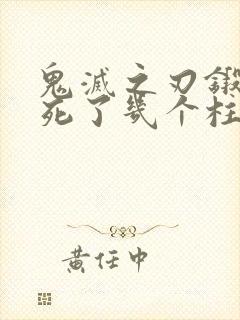 鬼滅之刃鍛
死了幾个柱
黄任中